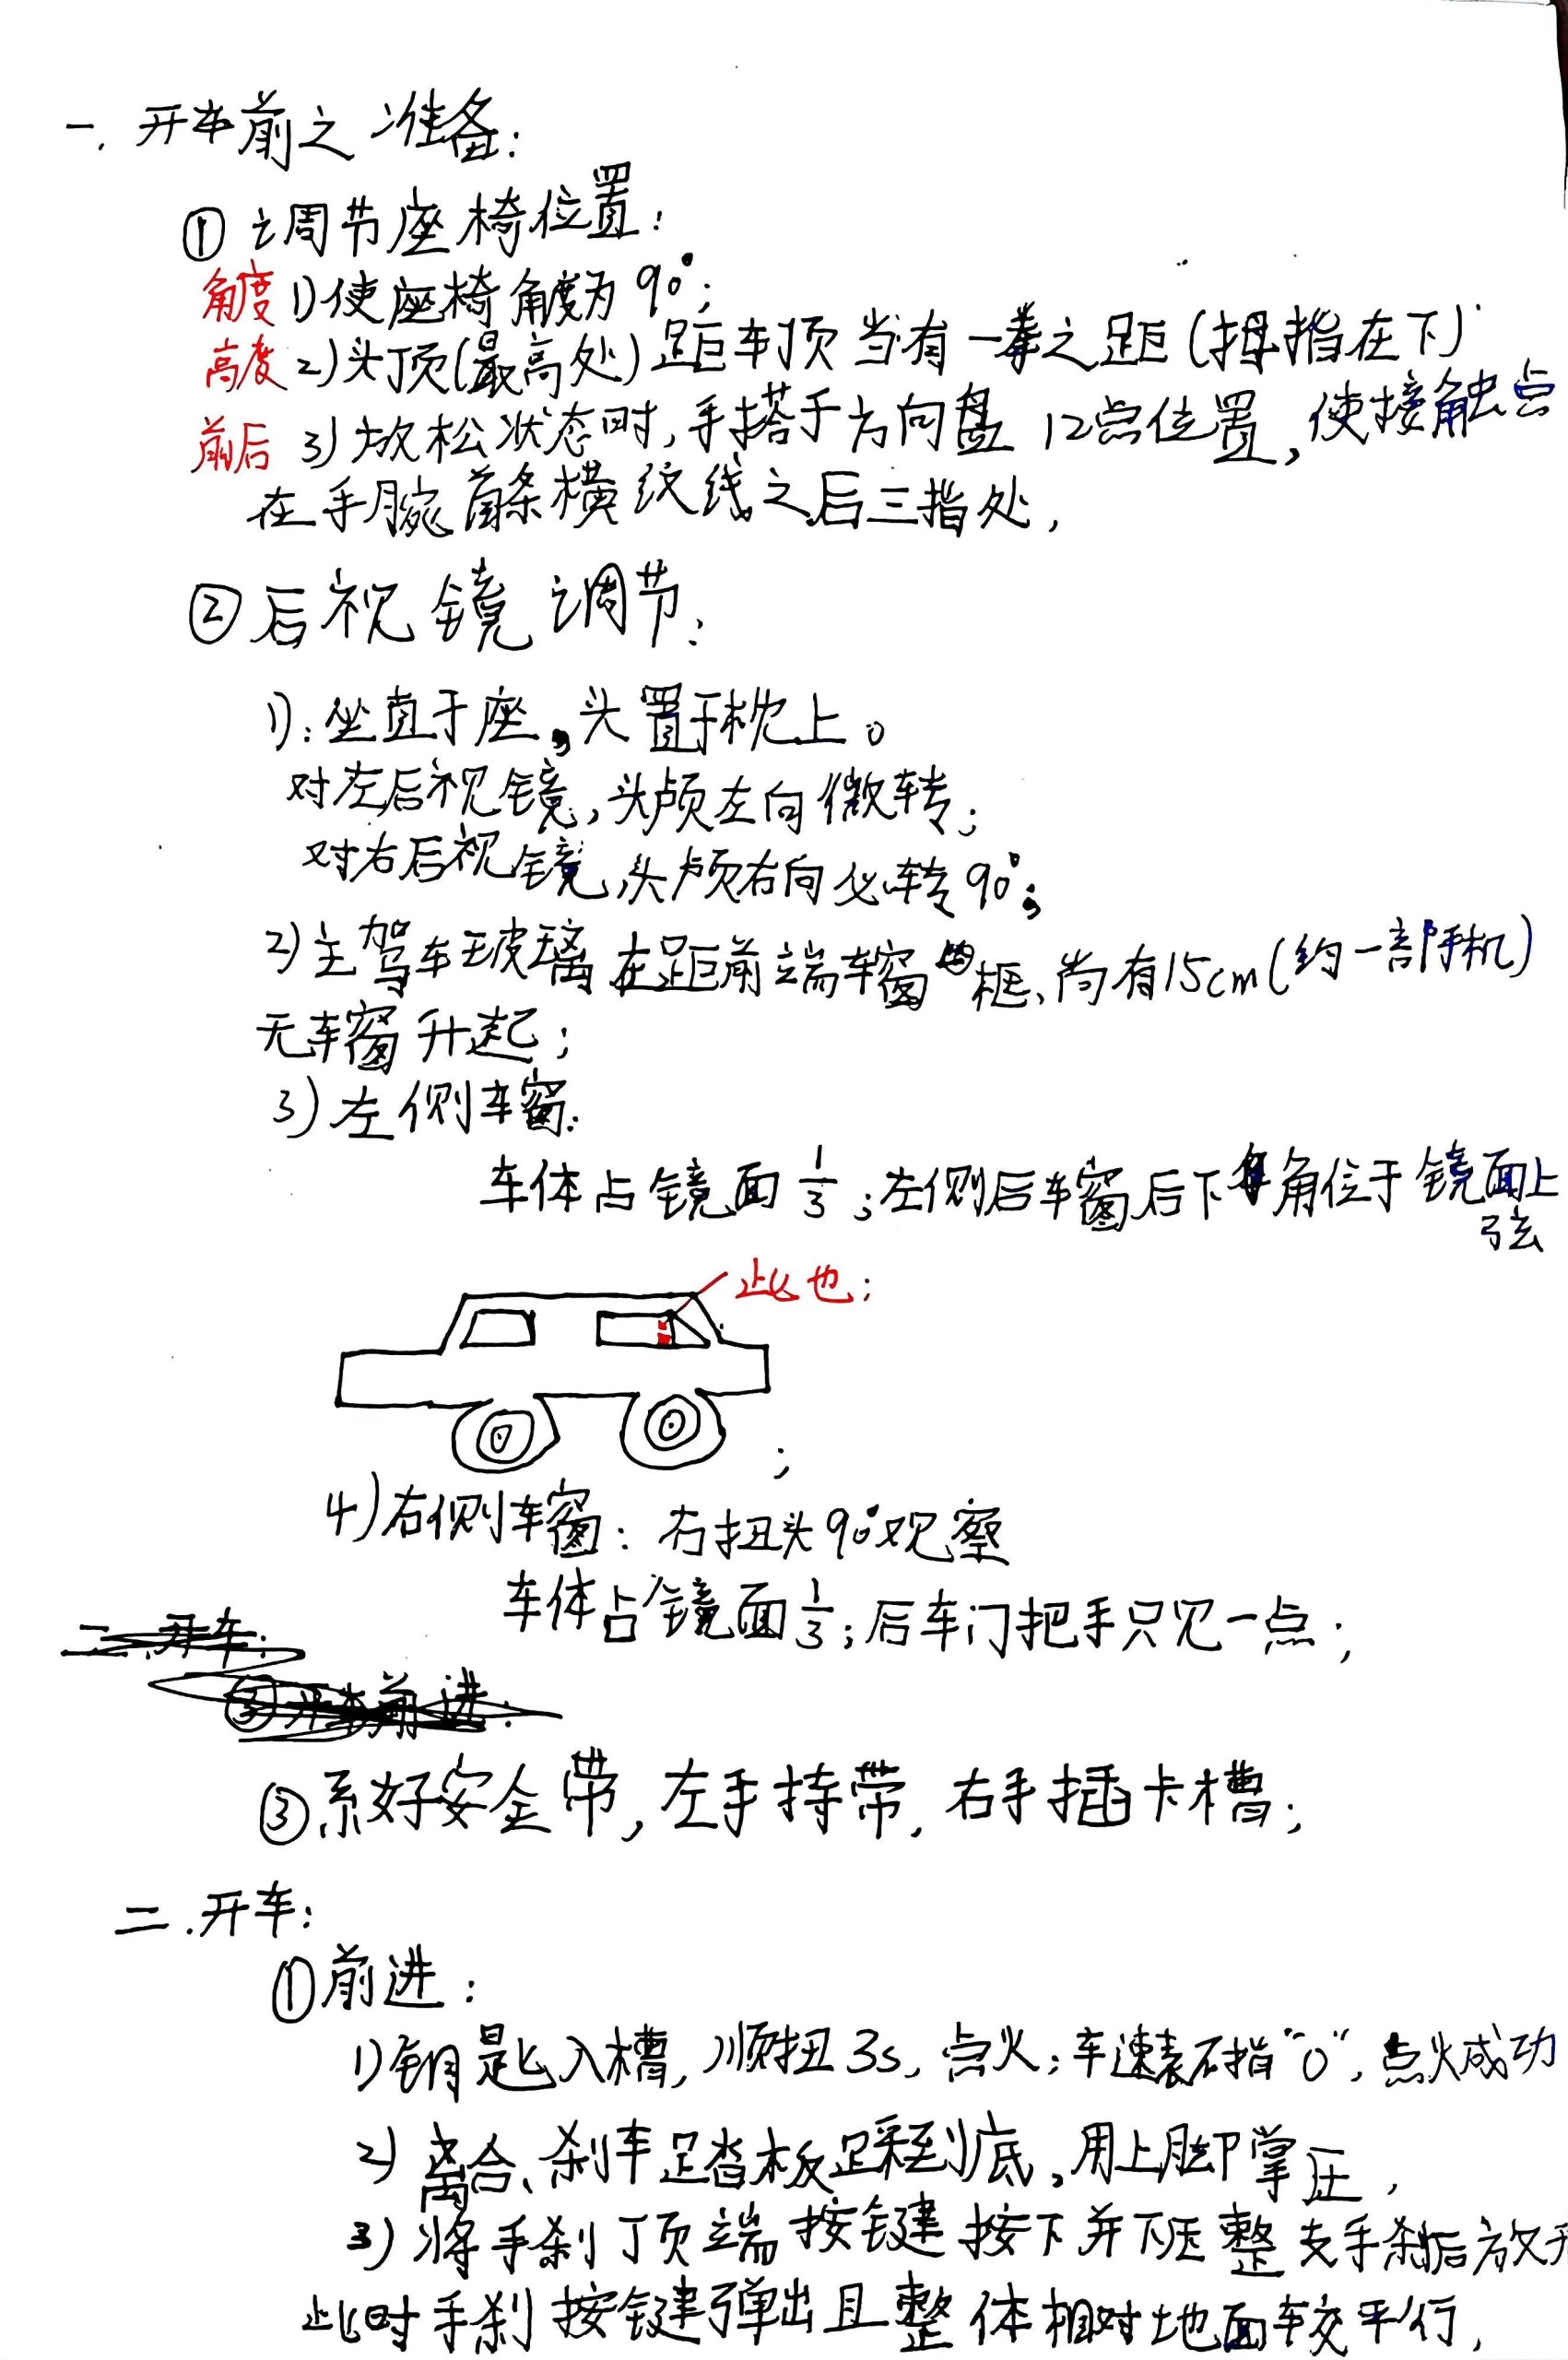 一. 开车前之准备:
① 调节座椅位置:
角度 1) 使座椅角度为90°;
高度 2) 头顶(最高处)距车顶当有一拳之距(拇指在下)
前后 3) 放松状态时, 手搭于方向盘12点位置, 使接触点
在手腕首条横纹线之后三指处,
② 后视镜调节:
1): 坐直于座, 头置于枕上。
对左后视镜, 头颅左向微转;
对右后视镜, 头颅右向必转90°;
2) 主驾车玻璃在距前端车窗框、尚有15cm(约一部手机)
无车窗升起;
3) 左侧车窗:
车体占镜面1/3; 左侧后车窗后下角位于镜面上
弦
此也;
;
4) 右侧车窗: 右扭头90°观察
车体占镜面1/3; 后车门把手只见一点;
二. 开车:
③ 开车前进:
③ 系好安全带, 左手持带, 右手插卡槽;
二. 开车:
① 前进:
1) 钥匙入槽, 顺扭3s, 点火; 车速表不指"0", 点火成功
2) 离合、刹车踏板踩到底, 用上脚掌压,
3) 将手刹顶端按键按下并下压整支手刹后放开
此时手刹按键弹出且整体相对地面较平行,